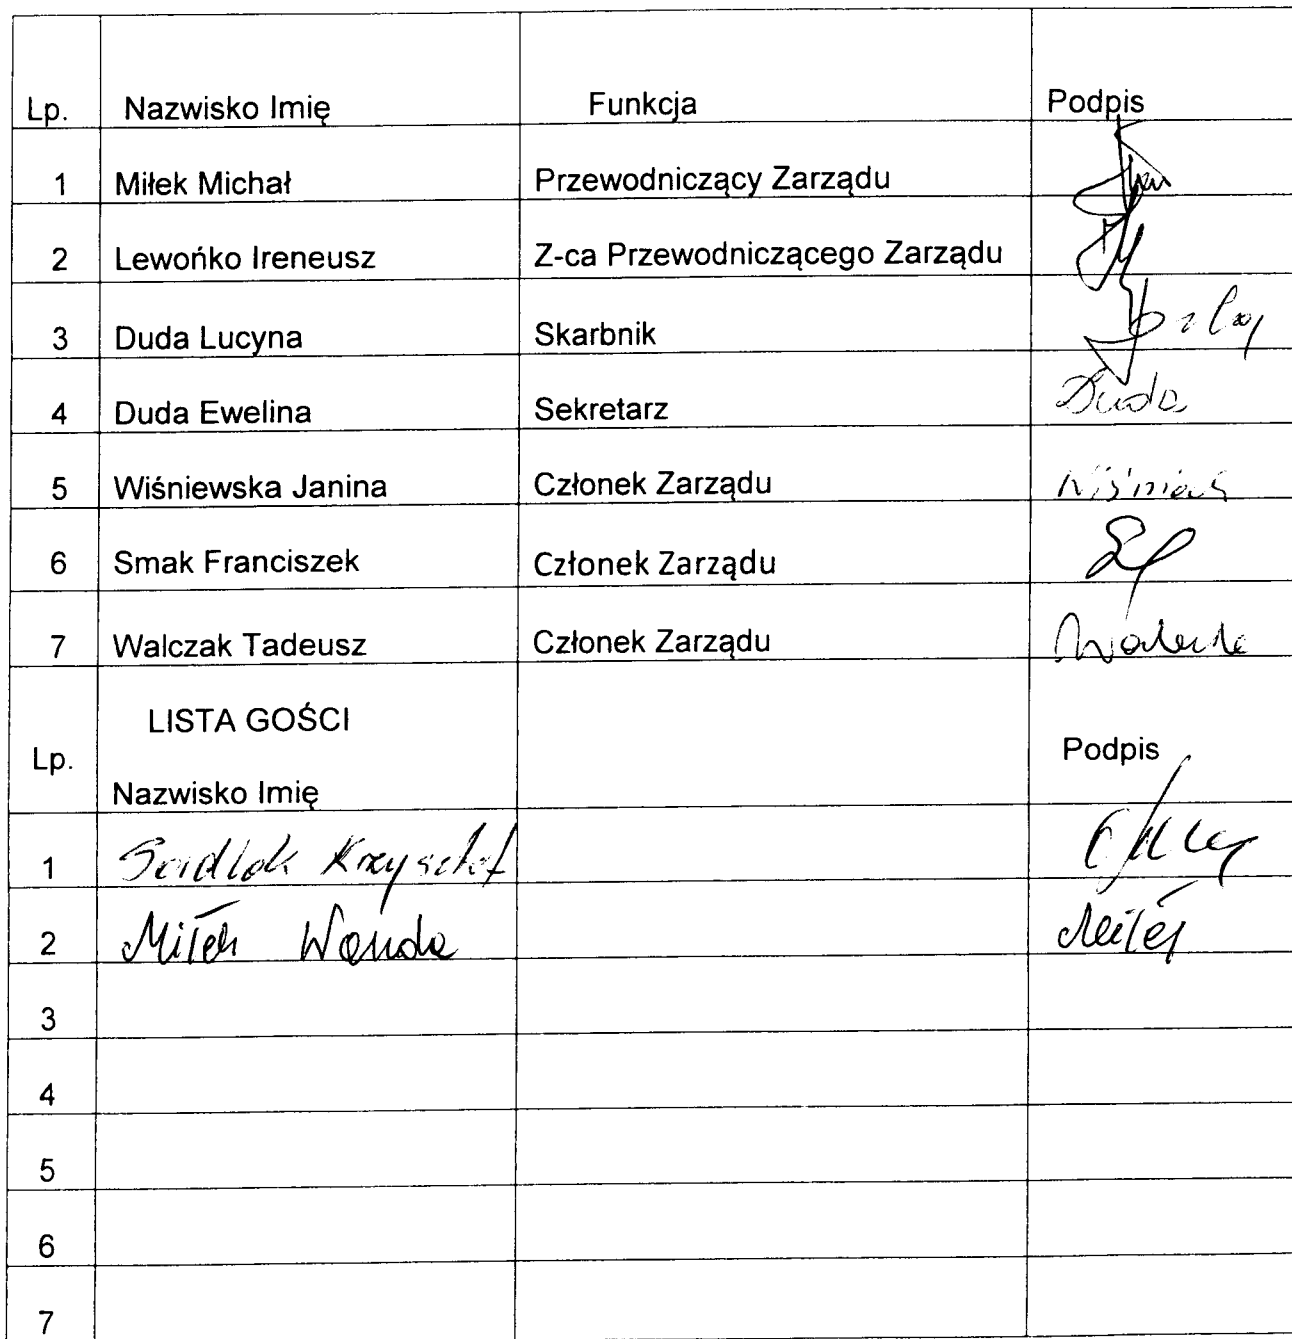 Lp. Nazwisko Imię Funkcja Podpis
1 Miłek Michał Przewodniczący Zarządu
2 Lewońko Ireneusz Z-ca Przewodniczącego Zarządu
3 Duda Lucyna Skarbnik
4 Duda Ewelina Sekretarz Duda
5 Wiśniewska Janina Członek Zarządu
6 Smak Franciszek Członek Zarządu
7 Walczak Tadeusz Członek Zarządu
LISTA GOŚCI
Lp. Podpis
Nazwisko Imię
1 Krzysztof
2 Miłek Wanda
3
4
5
6
7